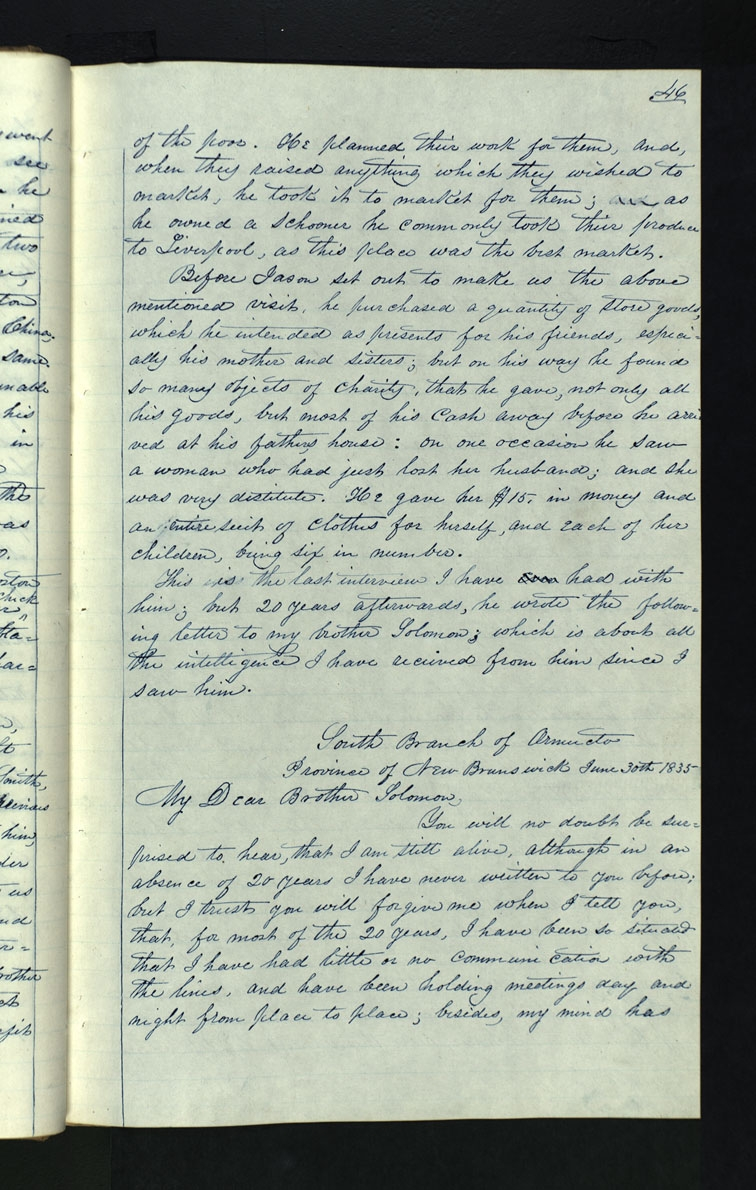 46
of the poor. He planned their work for them, and,
when they raised anything which they wished to
market, he took it to market for them; and as
he owned a schooner he commonly took their produce
to Liverpool, as this place was the best market.
Before Jason set out to make us the above
mentioned visit, he purchased a quantity of store goods,
which he intended as presents for his friends, especi=
ally his mother and sisters; but on his way he found
so many objects of charity, that he gave, not only all
his goods, but most of his cash away before he arri
ved at his fathers house: on one occasion he saw
a woman who had just lost her husband; and she
was very distitute. He gave her $15. in money and
an entire suit of clothes for herself, and each of her
children, being six in number.
This is the last interview I have had with
him; but 20 years afterwards, he wrote the follow=
ing letter to my brother Solomon; which is about all
the intelligence I have recieved from him since I
saw him.
South Branch of Ormucto
Province of New Brunswick June 30th 1835
My Dear Brother Solomon,
You will no doubt be sur=
prised to hear, that I am still alive, although in an
absence of 20 years I have never written to you before;
but I trust you will forgive me when I tell you,
that, for most of the 20 years, I have been so situated
that I have had little or no communication with
the lines, and have been holding meetings day and
night from place to place; besides, my mind has